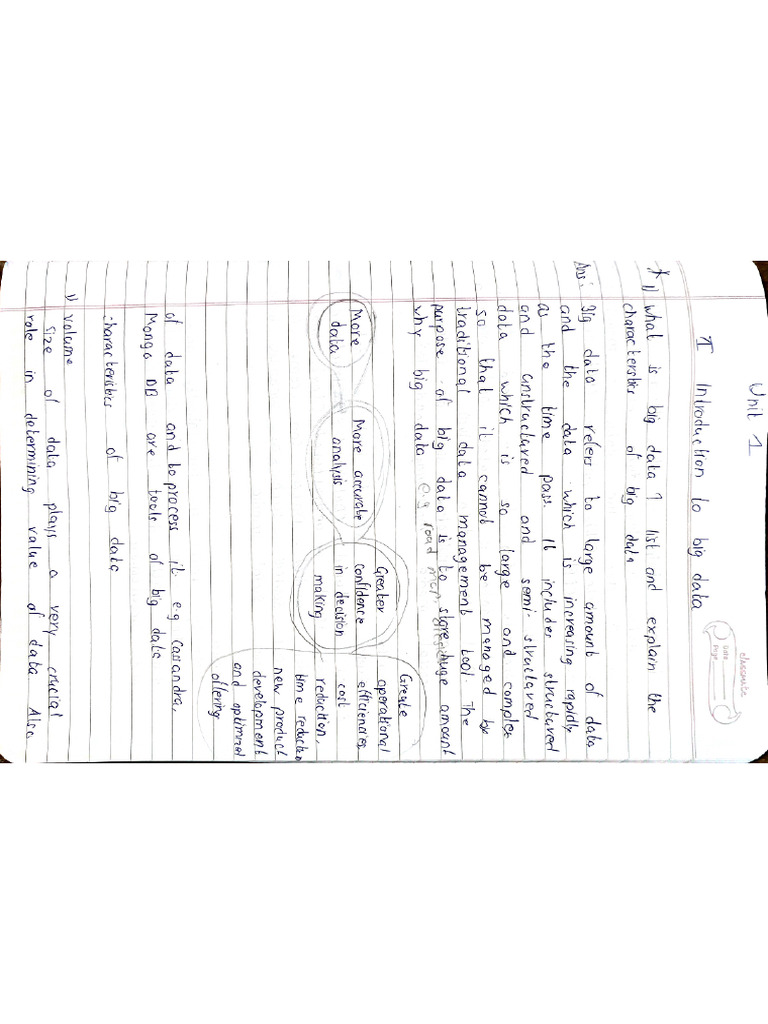 Unit 1
classmate
Date
Page
I Introduction to big data
* 1) what is big data ? list and explain the
characterstics of big data
Ans: Big data refers to large amount of data
and the data which is increasing rapidly
as the time pass. It includes structured
and unstructured and semi-structured
data which is so large and complex
so that it cannot be managed by
traditional data management tool. The
purpose of big data is to store huge amount
why big data e.g road map,
More
data
More accurate
analysis
Greater
confidence
in decision
making
Greate
operational
efficiencies
cost
reduction,
time reduction
new product
development
and optimized
offering
of data and to process it e.g Cassandra,
Mongo DB are tools of big data
characteristics of big data
1) Volume
size of data plays a very crucial
role in determining value of data Also